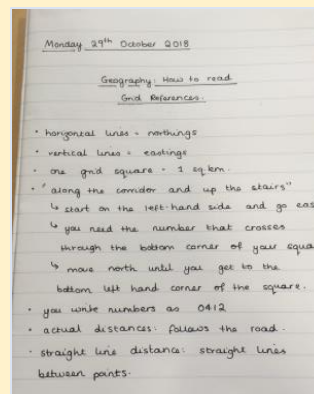 Monday 29th October 2018
Geography: How to read
Grid References.
• horizontal lines = northings
• vertical lines = eastings
• one grid square = 1 sq.km.
• "along the corridor and up the stairs"
↳ start on the left-hand side and go eas
↳ you need the number that crosses
through the bottom corner of your squa
↳ move north until you get to the
bottom left hand corner of the square.
• you write numbers as 0412
• actual distances: follows the road.
• straight line distance: straight lines
between points.